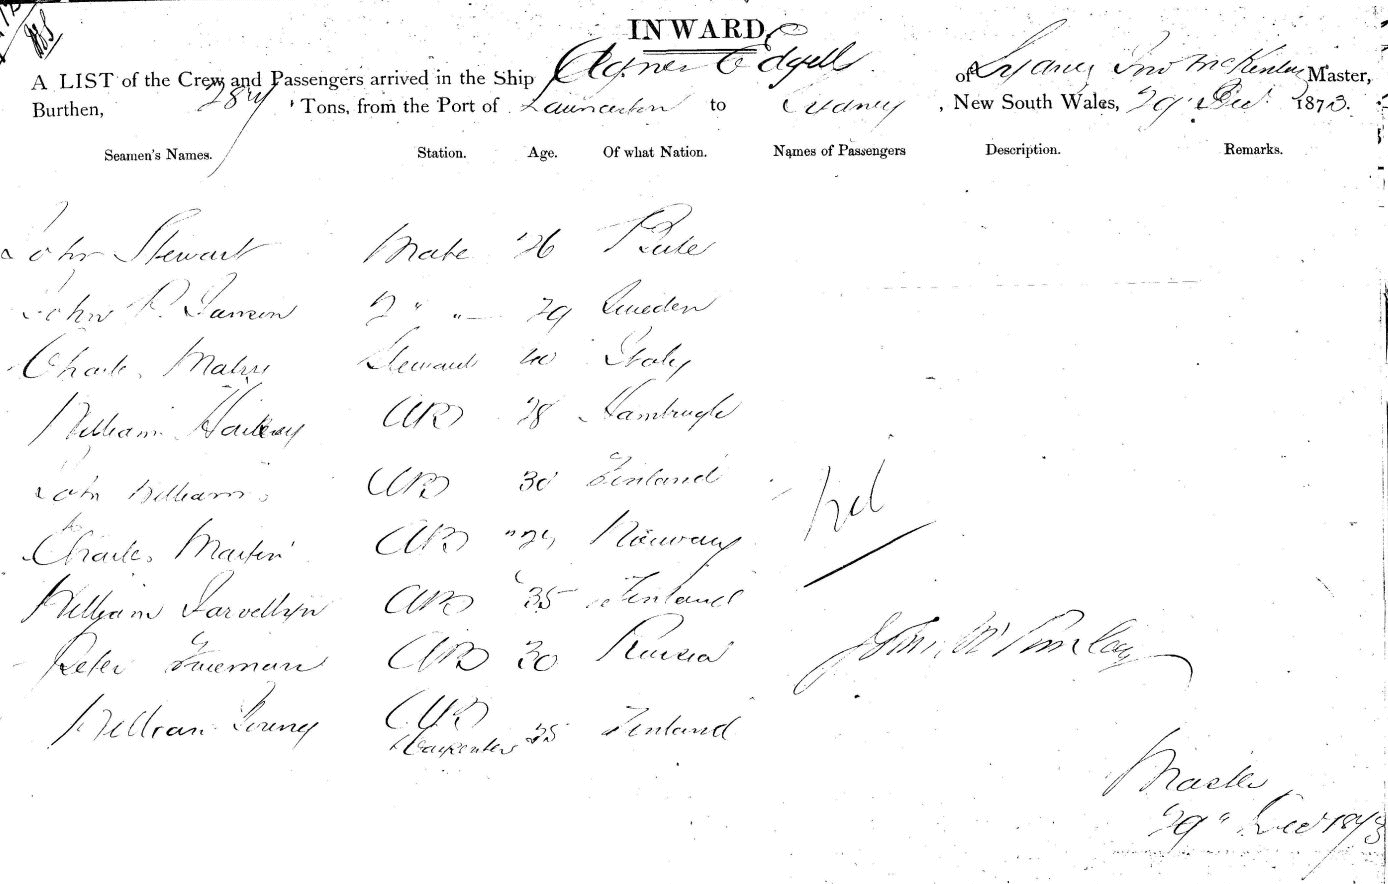 INWARD.
A LIST of the Crew and Passengers arrived in the Ship Agnes Edgell of Sydney Jno McKinlay Master,
Burthen, Tons, from the Port of Launceston to Sydney, New South Wales, 29 Dec 1873.
Seamen's Names. Station. Age. Of what Nation. Names of Passengers Description. Remarks.
John Stewart Mate 26 Bute
John P. 2 " " 29 Sweden
Charles Steward 40 Italy
William AB 28
John Williams AB 30 Finland
Charles Martin AB Norway
Nil
William AB 35 Finland
John McKinlay
Peter AB 30 Russia
William Young AB
Carpenter 35 Finland
Master
29" Dec 1873